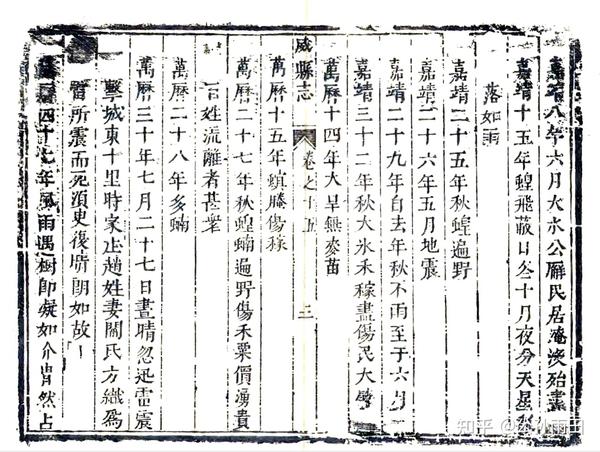 嘉靖八年六月大水公廨民居淹沒殆盡
嘉靖十五年蝗飛蔽日冬十月夜分天星
落如雨
嘉靖二十五年秋蝗遍野
嘉靖二十六年五月地震
嘉靖二十九年自去年秋不雨至于六月
嘉靖三十二年秋大水禾稼盡傷民大
萬曆十四年大旱無麥苗
威縣志
卷之十五
三
萬曆十五年螟螣傷稼
萬曆二十七年秋蝗蝻遍野傷禾粟價湧貴
百姓流離者甚衆
萬曆二十八年多蝻
萬曆三十年七月二十七日晝晴忽迅雷震
擊城東十里時家庄趙姓妻關氏方織爲
雷所震而死須臾後晴朗如故
四十七年風雨遇樹即凝如介胄然占
知乎